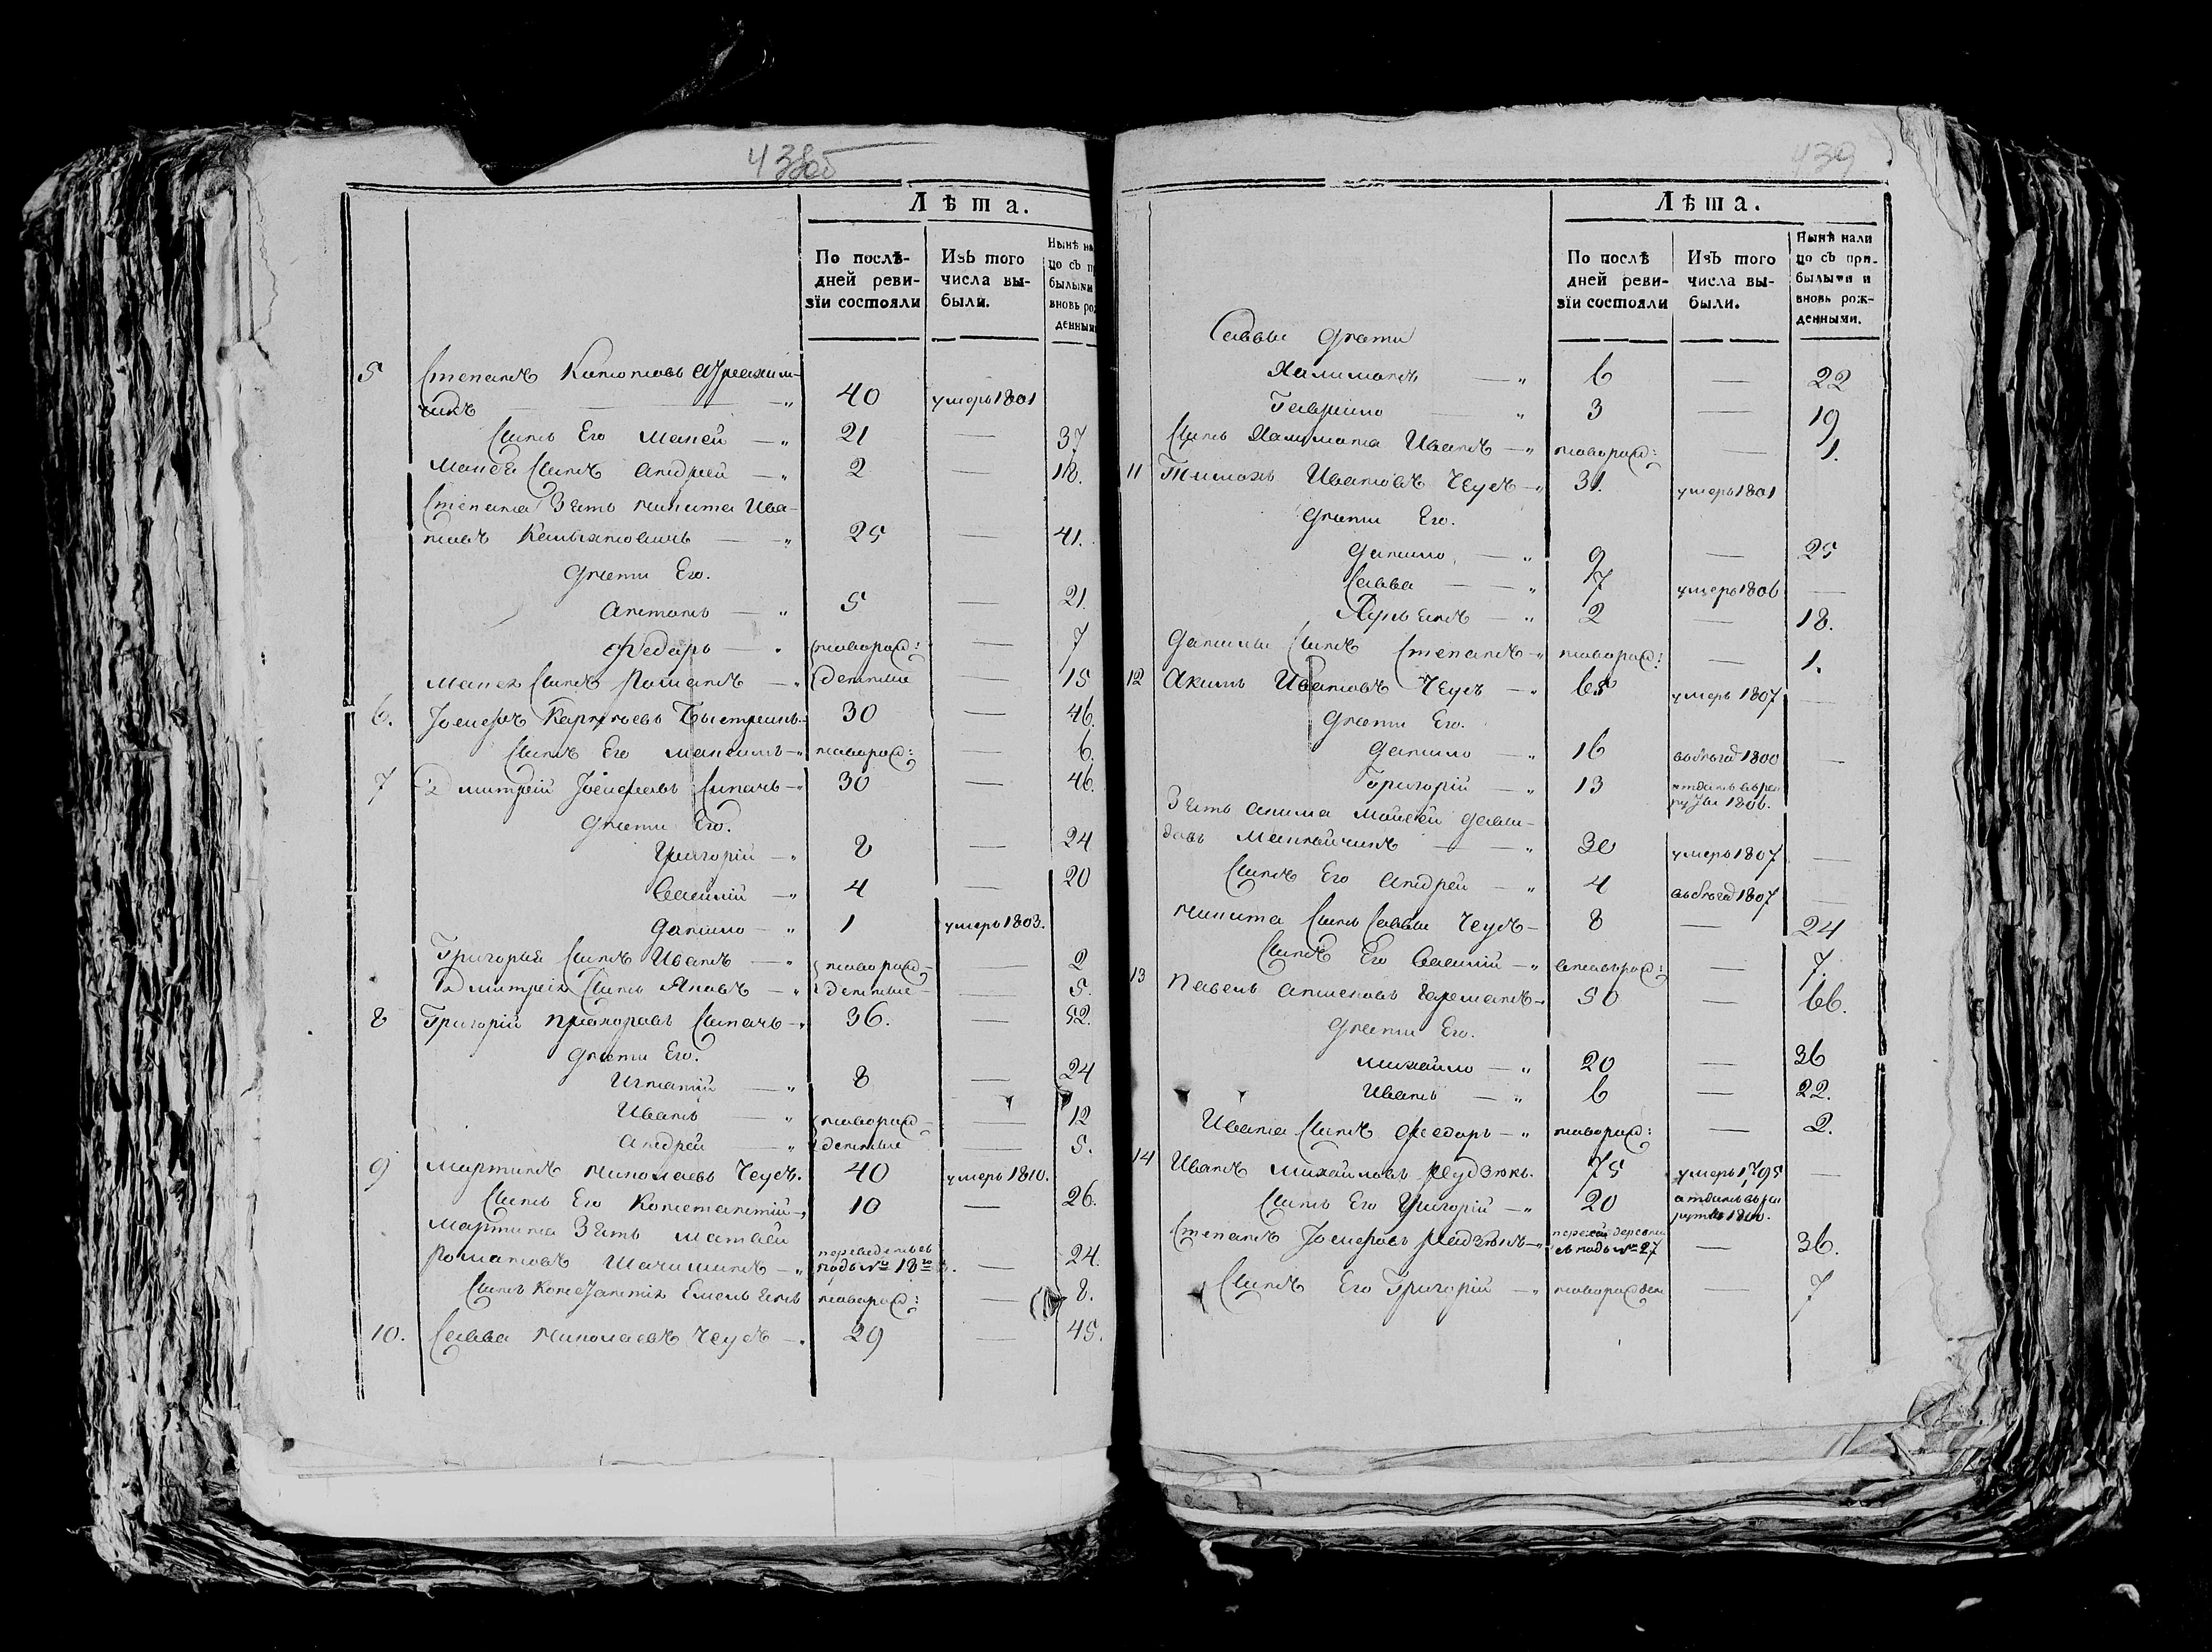 438об
Лѣта.
По послѣ- Изъ того Нынѣ на
дней реви- числа вы- цо съ п
зїи состояли были. былыми
вновь ро
денными
5 Степанъ Кононовъ
40 умеръ 1801
Сынъ Его Мацей — 21 — 37
Мацея Сынъ Андрей — 2 — 18.
Степана Зять Микита Ива-
новъ — 25 — 41.
Дѣти Его.
Антонъ — 5 — 21.
Федоръ — новорож: — 7
Мацея Сынъ Романъ — денные — 15
6. Іосифъ Карпѣевъ 30 — 46.
Сынъ Его Максимъ — новорож: — 6
7 Дмитрій Іосифовъ Синачъ — 30 — 46.
Дѣти Его.
Григорій — 8 — 24
Василій — 4 — 20
Данило — 1 умеръ 1803.
Григорья Сынъ Иванъ — новорож — 2
Дмитрея Сынъ Яковъ — денные — 5.
8 Григорій Прохоровъ Синачъ — 36. — 52.
Дѣти Его.
Игнатій — 8 — 24
Иванъ — новорож — 12
Андрей — денные — 5.
9 Мартинъ Николаевъ Чеусъ. 40 умеръ 1810.
Сынъ Его Константій — 10 — 26.
Мартина Зять Матвей
Романовъ — переведенъ съ подъ № 18го — 24.
Сынъ Константія Емельянъ новорож: — 8.
10. Савва Николаевъ Чеусъ — 29 — 45.
439
Лѣта.
По послѣ Изъ того Нынѣ нали
дней реви- числа вы- цо съ при-
зїи состояли были. былыми и
вновь рож-
денными.
Саввы Дѣти
Халимонъ — 6 — 22
Гаврило — 3 — 19
Сынъ Халимона Иванъ — новорож: — 1.
11 Тимохъ Ивановъ Чеусъ — 31. умеръ 1801
Дѣти Его.
Данило — 9 — 25
Савва — 7 умеръ 1806 —
Лукьянъ — 2 — 18.
Данилы Сынъ Степанъ — новорож: — 1.
12 Акимъ Ивановъ Чеусъ — 65 умеръ 1807 —
Дѣти Его.
Данило — 16 въ бѣгѣ 1800 —
Григорій — 13 отданъ въ ре
круты 1806.
Зять Акима Мойсей Давы-
довъ — 30 умеръ 1807 —
Сынъ Его Андрей — 4 въ бѣгѣ 1807 —
Микита Сынъ Саввы Чеусъ — 8 — 24
Сынъ Его Василій — новорож: — 7.
13 Павелъ — 50 — 66.
Дѣти Его.
Михайло — 20 — 36
Иванъ — 6 — 22.
Ивана Сынъ Федоръ — новорож: — 2.
14 Иванъ Михайловъ 75 умеръ 1795 —
Сынъ Его Григорій — 20 отданъ въ ре
круты 1800.
Степанъ Іосифовъ — деревни
съ подъ № 27 — 36.
Сынъ Его Григорій — новорожден — 7